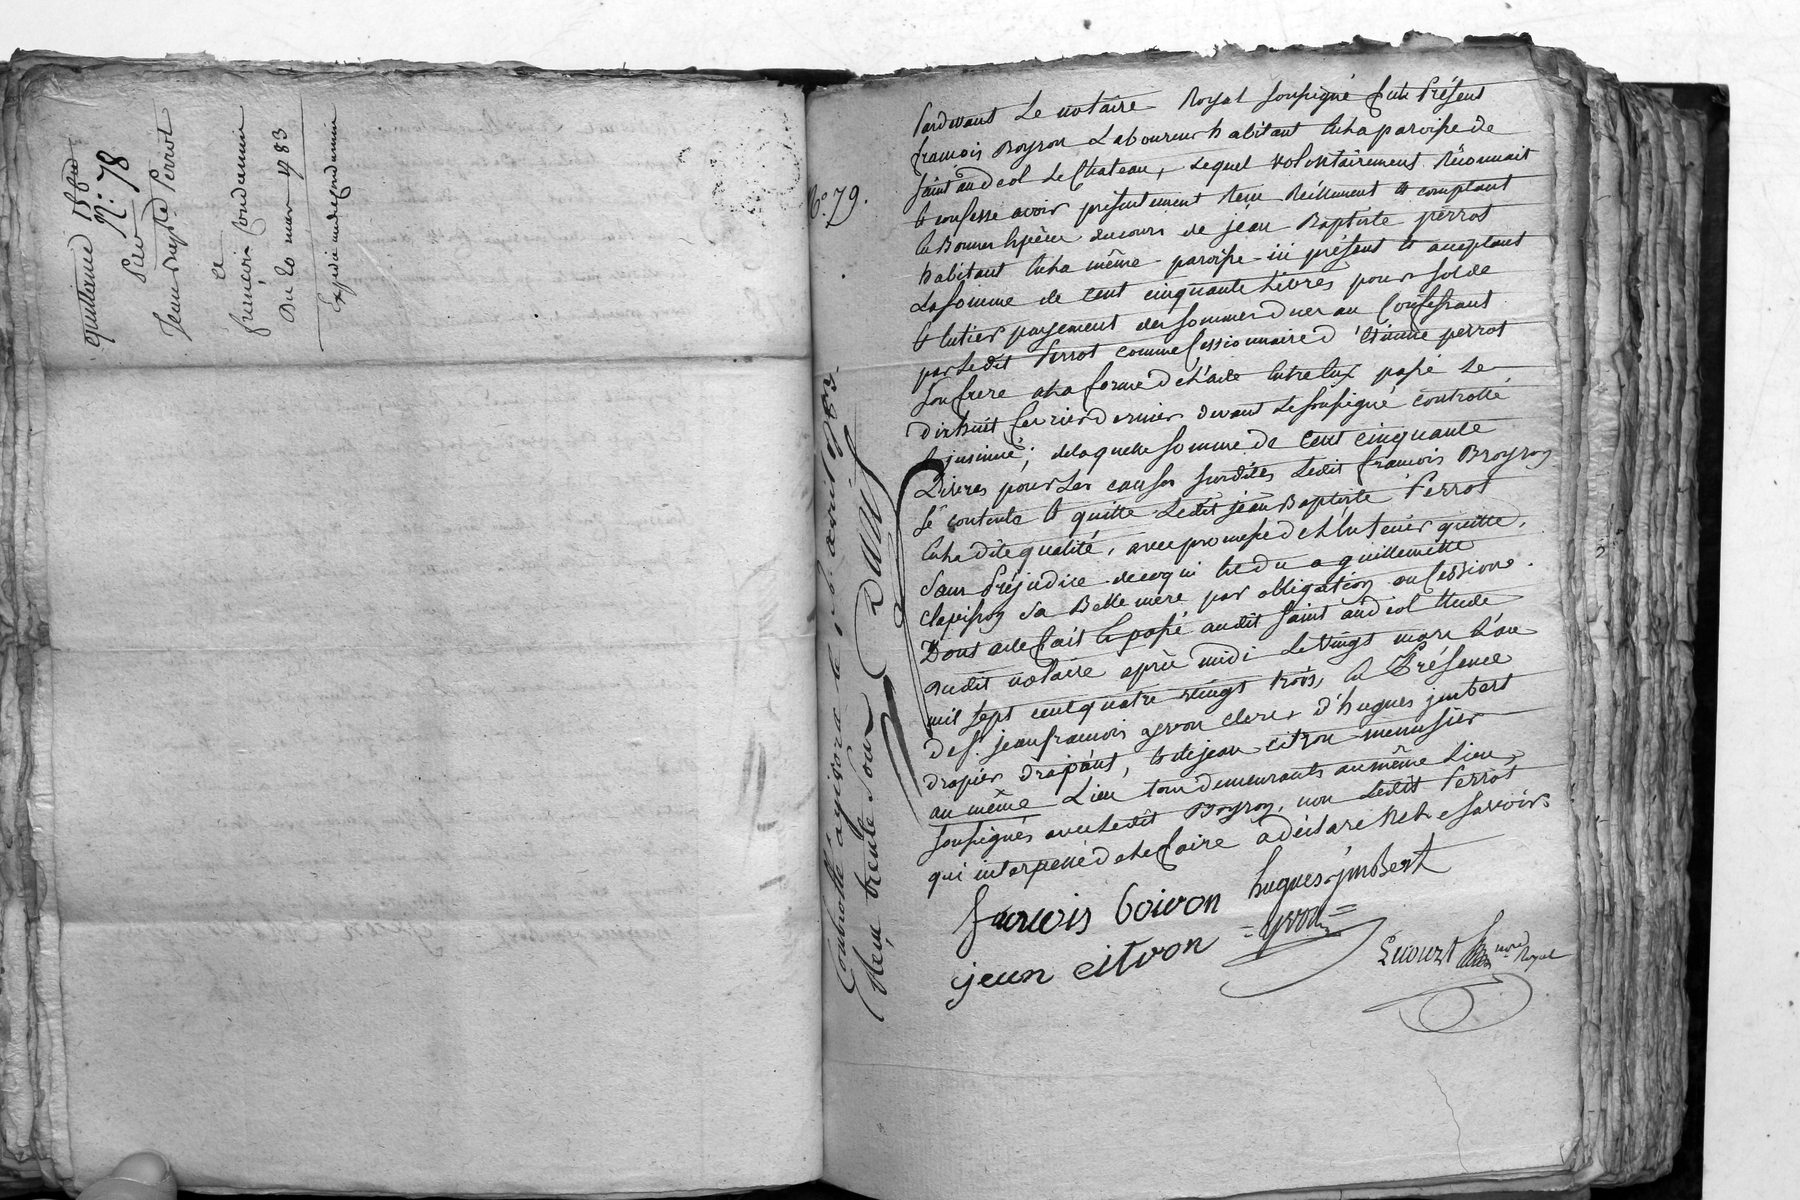 quittance 15₶
N.: 78
Pour
Jean Bap.te Perrot
Ce
francois Condamin
Du 20 mars 1783
Expedié audit Condamin
N.o 79.
Pardevant Le notaire Royal soussigné fut Présent
francois Boyron Laboureur habitant en la paroisse de
saint andeol Le Chateau, Lequel volontairement Réconnait
et confesse avoir présentement Reçu Réellement et comptant
en Bonnes espèces du cours de jéan Baptiste perrot
habitant en la même paroisse ici présent et acceptant
La somme de Cent cinquante Livres pour solde
et entier payement des sommes dues au Confessant
par Ledit Perrot comme Cessionnaire d'étienne perrot
son frere a la forme de l'acte entre eux passé Le
dixhuit fevrier dernier devant Le soussigné controllé
et jnsinué; de laquelle somme de Cent cinquante
Livres pour Les causes susdites Ledit francois Broyron
se contente et quitte Ledit jean Baptiste Perrot
en la dite qualité, avec promesse de l'en tenir quitte,
sans Préjudice de ce qui est du a guillemette
clapisson sa Belle mere par obligation ou Cessions.
Dont acte fait et passé audit saint andeol Etude
dudit notaire après midi Le vingt mars L'an
mil sept cent quatre vingt trois, en Présence
de s.r jean francois yvron clerc, d'hugues jmbert
drapier drapant, et de jean citron menusier
au même Lieu tous demeurants au même Lieu,
soussignés avec Ledit Boyron, non Ledit Perrot
qui interpellé de le faire a déclaré ne le savoir.
francois boiron hugues jmbert
= yvron =
jean citron
Lecourt Not.re Royal
Controllé a givors le 1er avril 1783.
Reçu trente sous